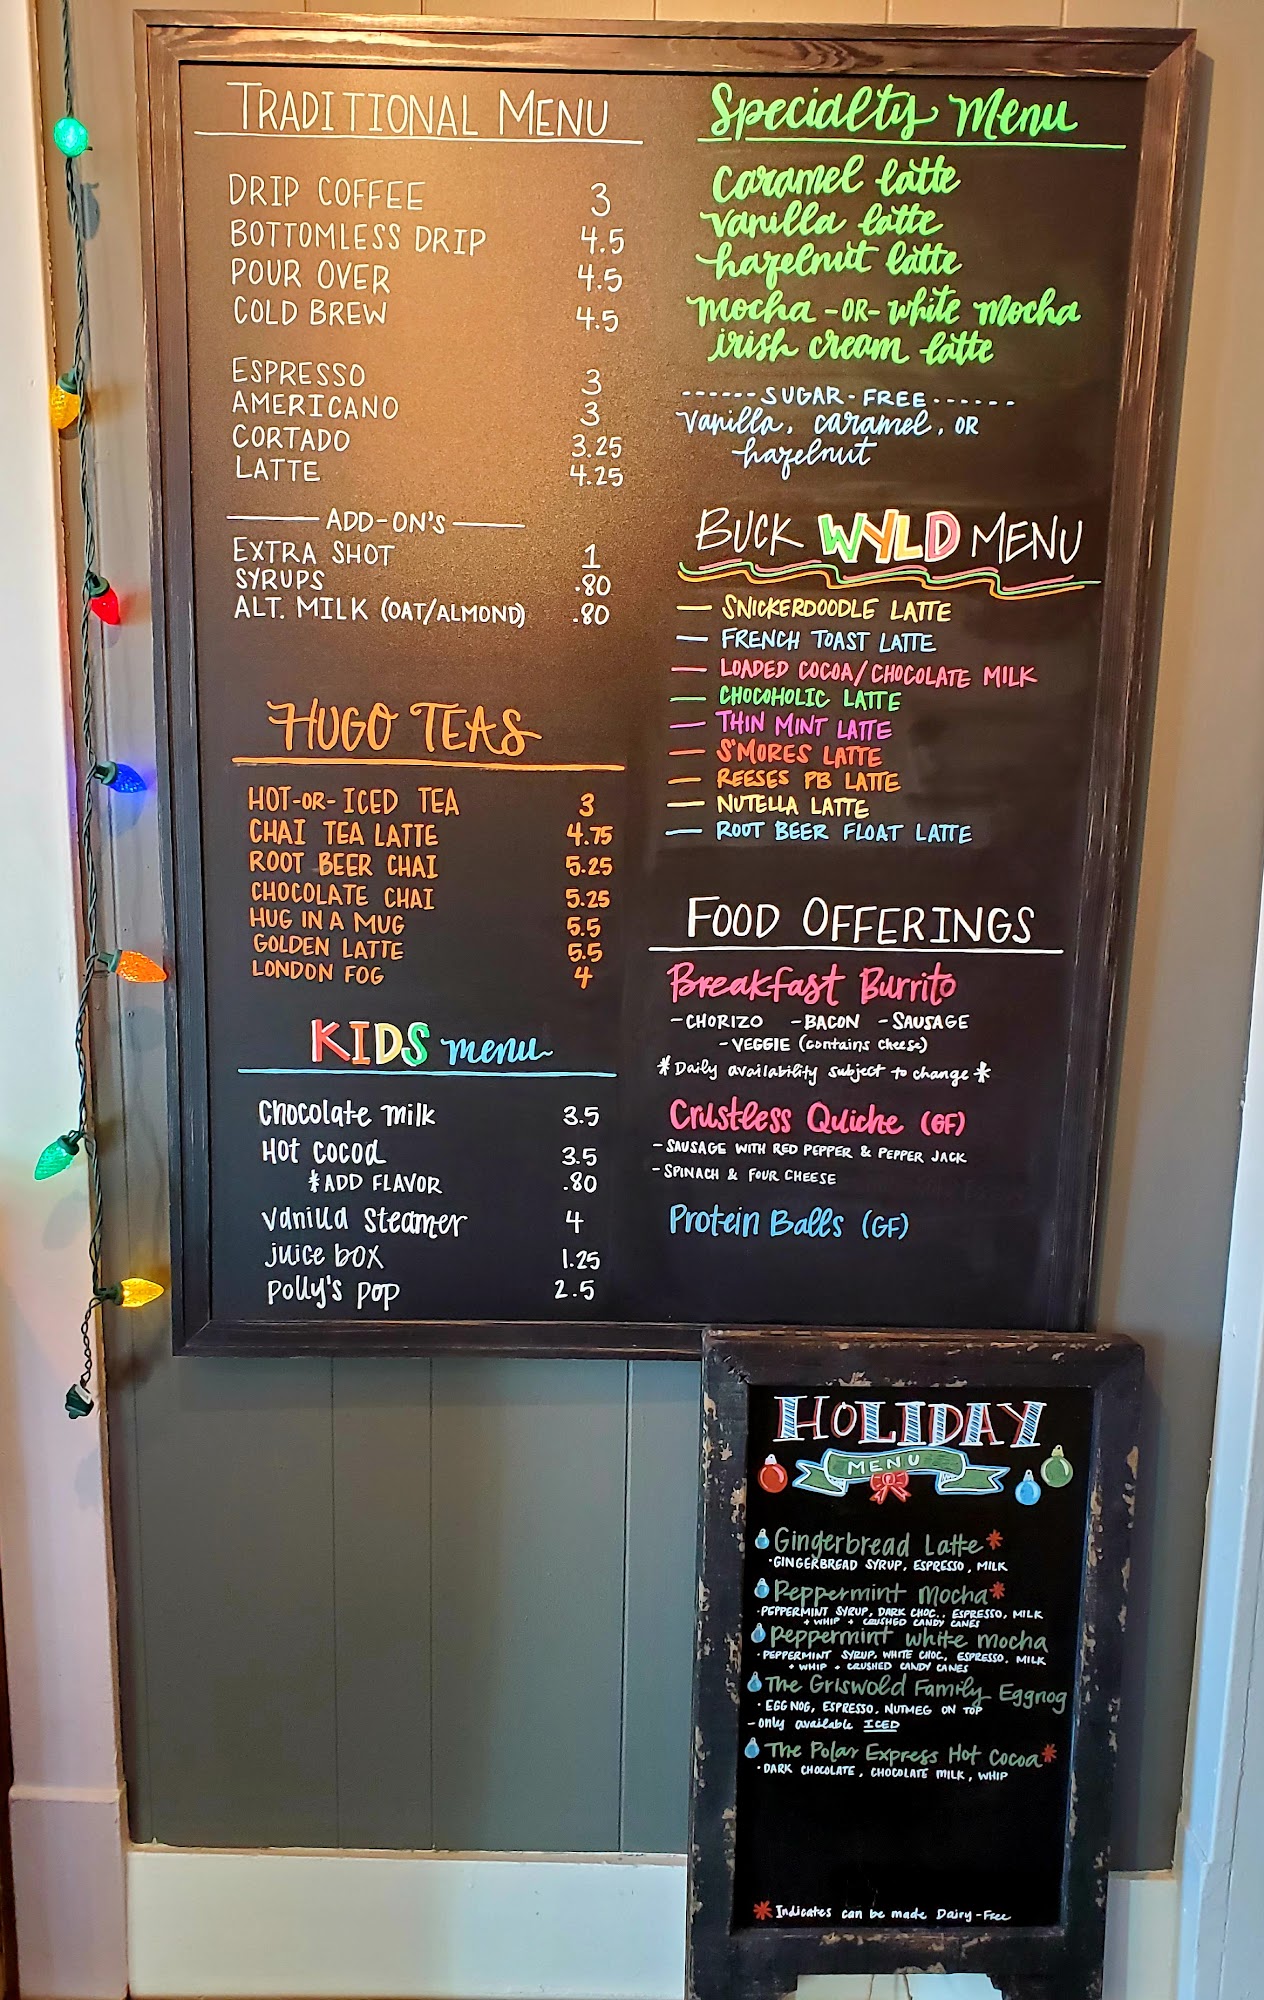 TRADITIONAL MENU
DRIP COFFEE 3
BOTTOMLESS DRIP 4.5
POUR OVER 4.5
COLD BREW 4.5
ESPRESSO 3
AMERICANO 3
CORTADO 3.25
LATTE 4.25
ADD-ON'S
EXTRA SHOT 1
SYRUPS .80
ALT. MILK (OAT/ALMOND) .80
HUGO TEAS
HOT-OR-ICED TEA 3
CHAI TEA LATTE 4.75
ROOT BEER CHAI 5.25
CHOCOLATE CHAI 5.25
HUG IN A MUG 5.5
GOLDEN LATTE 5.5
LONDON FOG 4
KIDS menu
Chocolate milk 3.5
Hot cocoa 3.5
*ADD FLAVOR .80
vanilla steamer 4
juice box 1.25
polly's pop 2.5
Specialty Menu
Caramel latte
vanilla latte
hazelnut latte
mocha -OR- white mocha
irish cream latte
------SUGAR-FREE------
vanilla, caramel, OR
hazelnut
BUCK WYLD MENU
— SNICKERDOODLE LATTE
— FRENCH TOAST LATTE
— LOADED COCOA/CHOCOLATE MILK
— CHOCOHOLIC LATTE
— THIN MINT LATTE
— S'MORES LATTE
— REESES PB LATTE
— NUTELLA LATTE
— ROOT BEER FLOAT LATTE
FOOD OFFERINGS
Breakfast Burrito
-CHORIZO -BACON -SAUSAGE
-VEGGIE (contains cheese)
*Daily availability subject to change*
Crustless Quiche (GF)
-SAUSAGE WITH RED PEPPER & PEPPER JACK
-SPINACH & FOUR CHEESE
Protein Balls (GF)
HOLIDAY
MENU
Gingerbread Latte*
·GINGERBREAD SYRUP, ESPRESSO, MILK
Peppermint Mocha*
·PEPPERMINT SYRUP, DARK CHOC., ESPRESSO, MILK
+ WHIP + CRUSHED CANDY CANES
Peppermint white mocha
·PEPPERMINT SYRUP, WHITE CHOC, ESPRESSO, MILK
+ WHIP + CRUSHED CANDY CANES
The Griswold Family Eggnog
·EGG NOG, ESPRESSO, NUTMEG ON TOP
-only available ICED
The Polar Express Hot Cocoa*
·DARK CHOCOLATE, CHOCOLATE MILK, WHIP
*Indicates can be made Dairy-Free